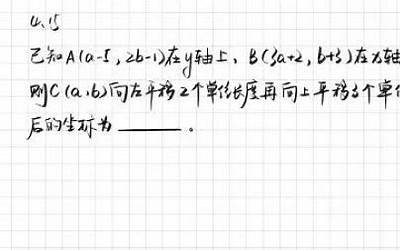 4.15
已知A(a-5,2b-1)在y轴上、B(3a+2,b+3)在x轴
则C(a,b)向左平移2个单位长度再向上平移3个单位
后的坐标为______。